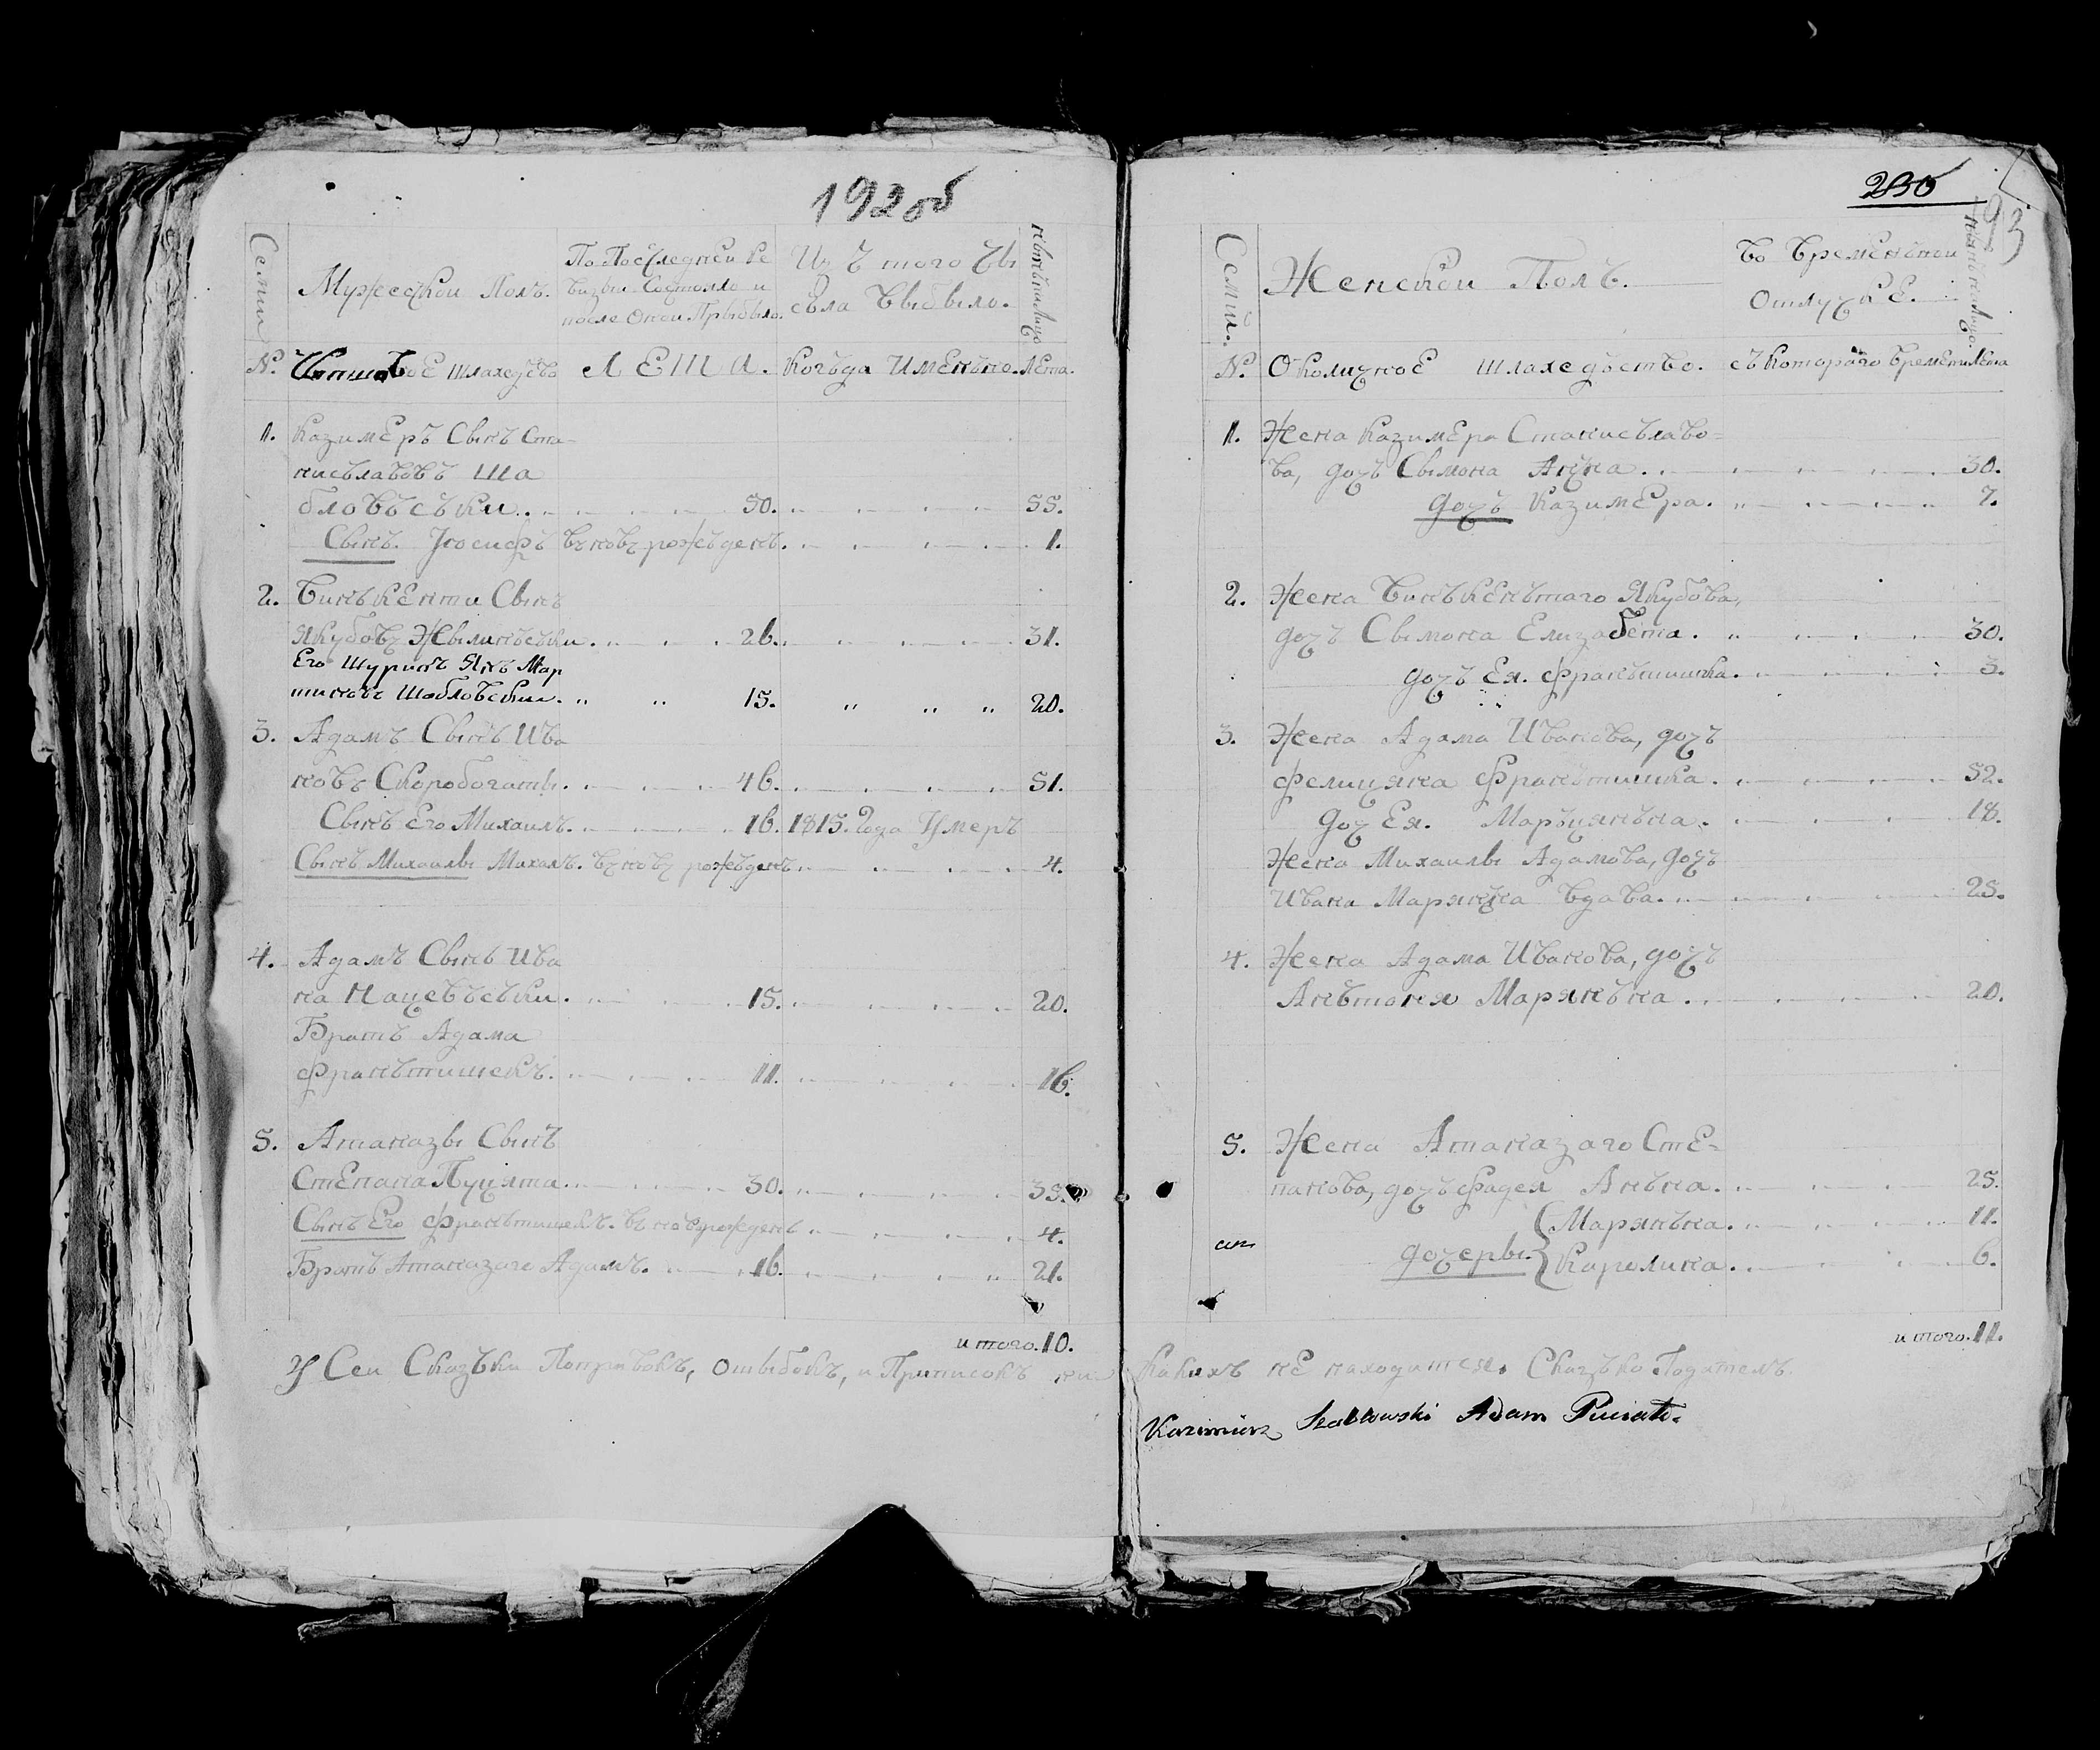 192об
Семии
Мужеськои Полъ.
По Последнеи Ре
визыи Состояло и
после Онои Прыбыло.
Из Ъ того Чы
съла Выбыло.
Ныне на Лицо
№. шляхецътво ЛЕТА. Когъда Именьно. Лета.
1. КазимЕръ Сынъ Ста-
нисълавовъ Ша
бловъсъки. 50. 55.
Сынъ. Јосифъ въновъ рожъденъ. 1.
2. ВинъкЕнти Сынъ
Якубовъ Жвылинъсъки. 26. 31.
Его Шуринъ Янъ Мар
тиновъ Шабловъски. 15. 20.
3. Адамъ Сынъ Ива
новъ Скоробогаты. 46. 51.
Сынъ Его Михаилъ. 16. 1815. Года Умеръ
Сынъ Михаилы Михалъ. въновъ рожъденъ 4.
4. Адамъ Сынъ Ива
на Мацевъсъки. 15. 20.
Братъ Адама
Франътишекъ. 11. 16.
5. Атаназы Сынъ
СтЕпана Пуцята. 30. 35.
Сынъ Его Франътишекъ. въновърожденъ 4.
Братъ Атаназаго Адамъ. 16. 21.
итого. 10.
У Сеи Сказъки Поправокъ, Ошыбокъ, и Приписокъ ни
236
93
Семии.
Женскои Полъ.
Во Временънои
ОтлучкЕ.
№. ОколичноЕ шляхедъство. съ Котораго Времени Лета
1. Жена КазимЕра Станисълаво=
ва, дочъ Сымона Анъна. 30.
дочъ КазимЕра. 7.
2. Жена ВинъкЕнътаго Якубова,
дочъ Сымона Елизабета. 30.
дочъ Ея. Франътишка. 3.
3. Жена Адама Иванова, дочъ
Фелицяна Франътишка. 52.
Доч Ея. Маръцянъна. 18.
Жена Михаилы Адамова, дочъ
Ивана Марянъна Вдава. 25.
4. Жена Адама Иванова, дочъ
Анътонея Марянъна. 20.
5. Жена Атаназаго СтЕ=
панова, дочъ Фадея Анъна. 25.
Марянъна. 11.
дочеры. Каролина. 6.
итого. 11.
какихъ нЕ находитея. Сказъко Подателъ.
Kazimierz Szabłowski Adam Puciato.